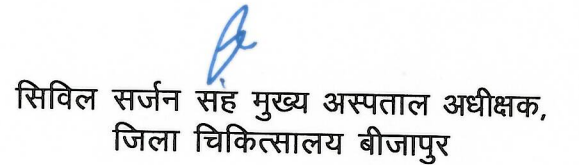 सिविल सर्जन सह मुख्य अस्पताल अधीक्षक,
जिला चिकित्सालय बीजापुर